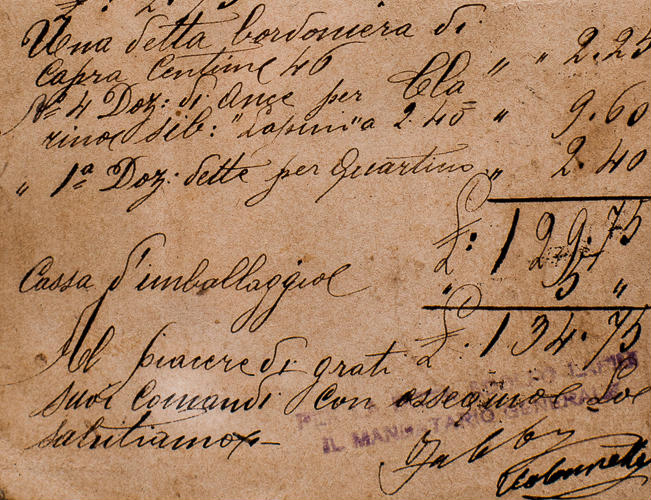 Una detta bordoniera di
Capra Centime 46 " " 2.25
N° 4 Doz: di Ance per Cla
rinoe sib: "Lapini" a 2.40 " 9.60
" 1a Doz: dette per Quartino " 2.40
£: 129.75
Cassa d'imballaggioe " 5 "
£. 134.75
Al piacere di grati
suoi comandi con ossequioe Loe
salutiamoe
IL MANDATARIO GENERALE